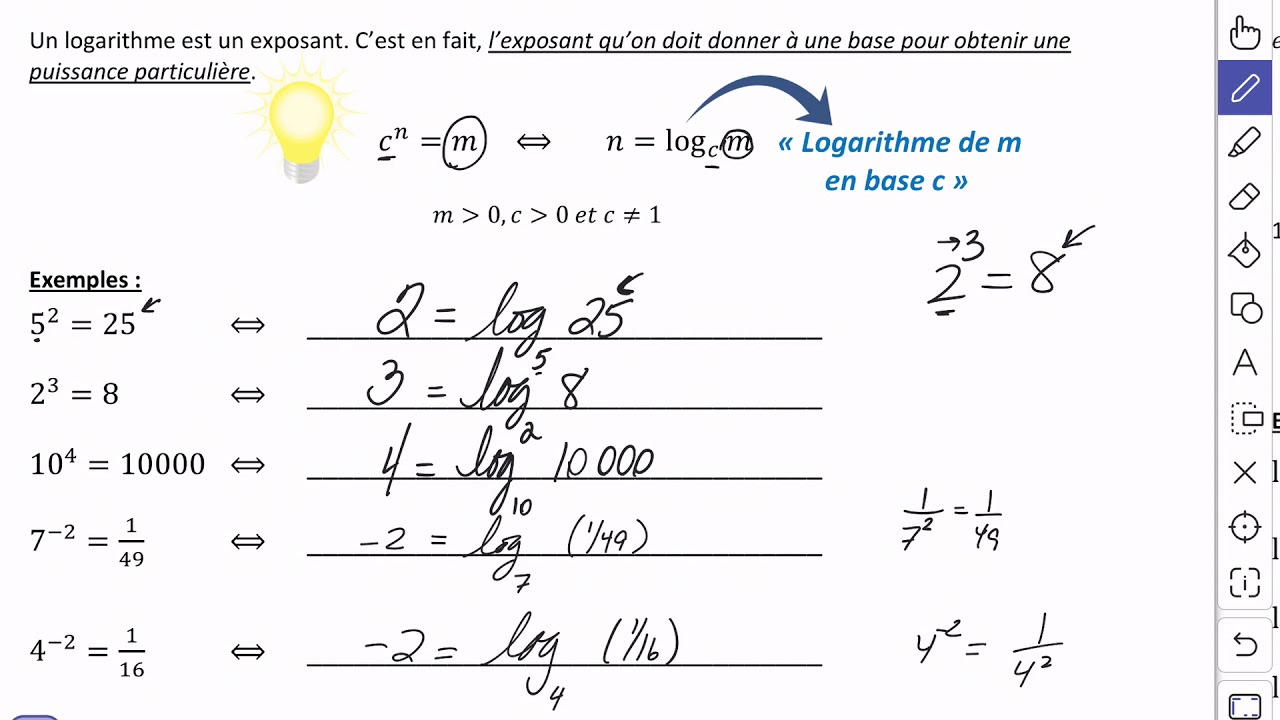 Un logarithme est un exposant. C’est en fait, l’exposant qu’on doit donner à une base pour obtenir une
puissance particulière.
cⁿ = m ⇔ n = log_c m « Logarithme de m
en base c »
m > 0, c > 0 et c ≠ 1
→3
2³ = 8
Exemples :
5² = 25 ⇔ 2 = log₅ 25
2³ = 8 ⇔ 3 = log₂ 8
10⁴ = 10000 ⇔ 4 = log₁₀ 10 000
7⁻² = 1/49 ⇔ -2 = log₇ (1/49) 1/7² = 1/49
4⁻² = 1/16 ⇔ -2 = log₄ (1/16) 4⁻² = 1/4²
A